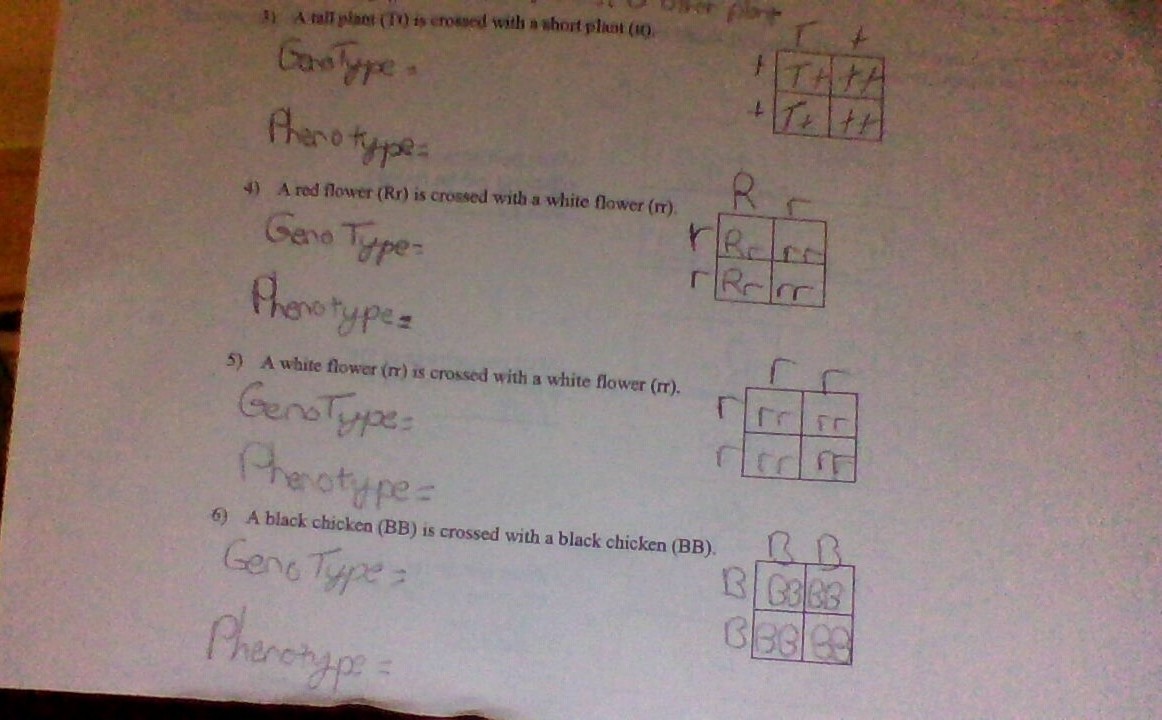 other plant
3) A tall plant (Tt) is crossed with a short plant (tt).
T t
GenoType =
t Tt tt
t Tt tt
Phenotype =
4) A red flower (Rr) is crossed with a white flower (rr).
R r
Geno Type=
r Rr rr
r Rr rr
Phenotype=
5) A white flower (rr) is crossed with a white flower (rr).
r r
GenoType=
r rr rr
r rr rr
Phenotype=
6) A black chicken (BB) is crossed with a black chicken (BB).
B B
Geno Type=
B BB BB
B BB BB
Phenotype=